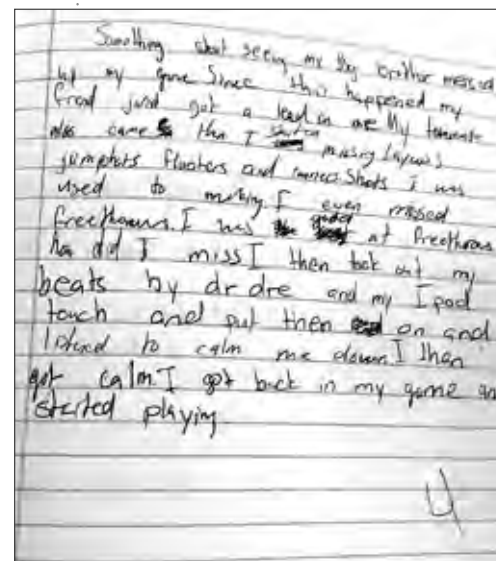 Something about seeing my big brother messed
up my game Since this happened my
friend just got a lead on me My teammate
also came than I started missing layups
jumpshots floaters and Shots I was
used to making. I even missed
freethrows. I was good at freethrows
how did I miss I then took out my
beats by dr dre and my I pod
touch and put then on and
listened to calm me down. I than
got calm. I got back in my game an
started playing
4